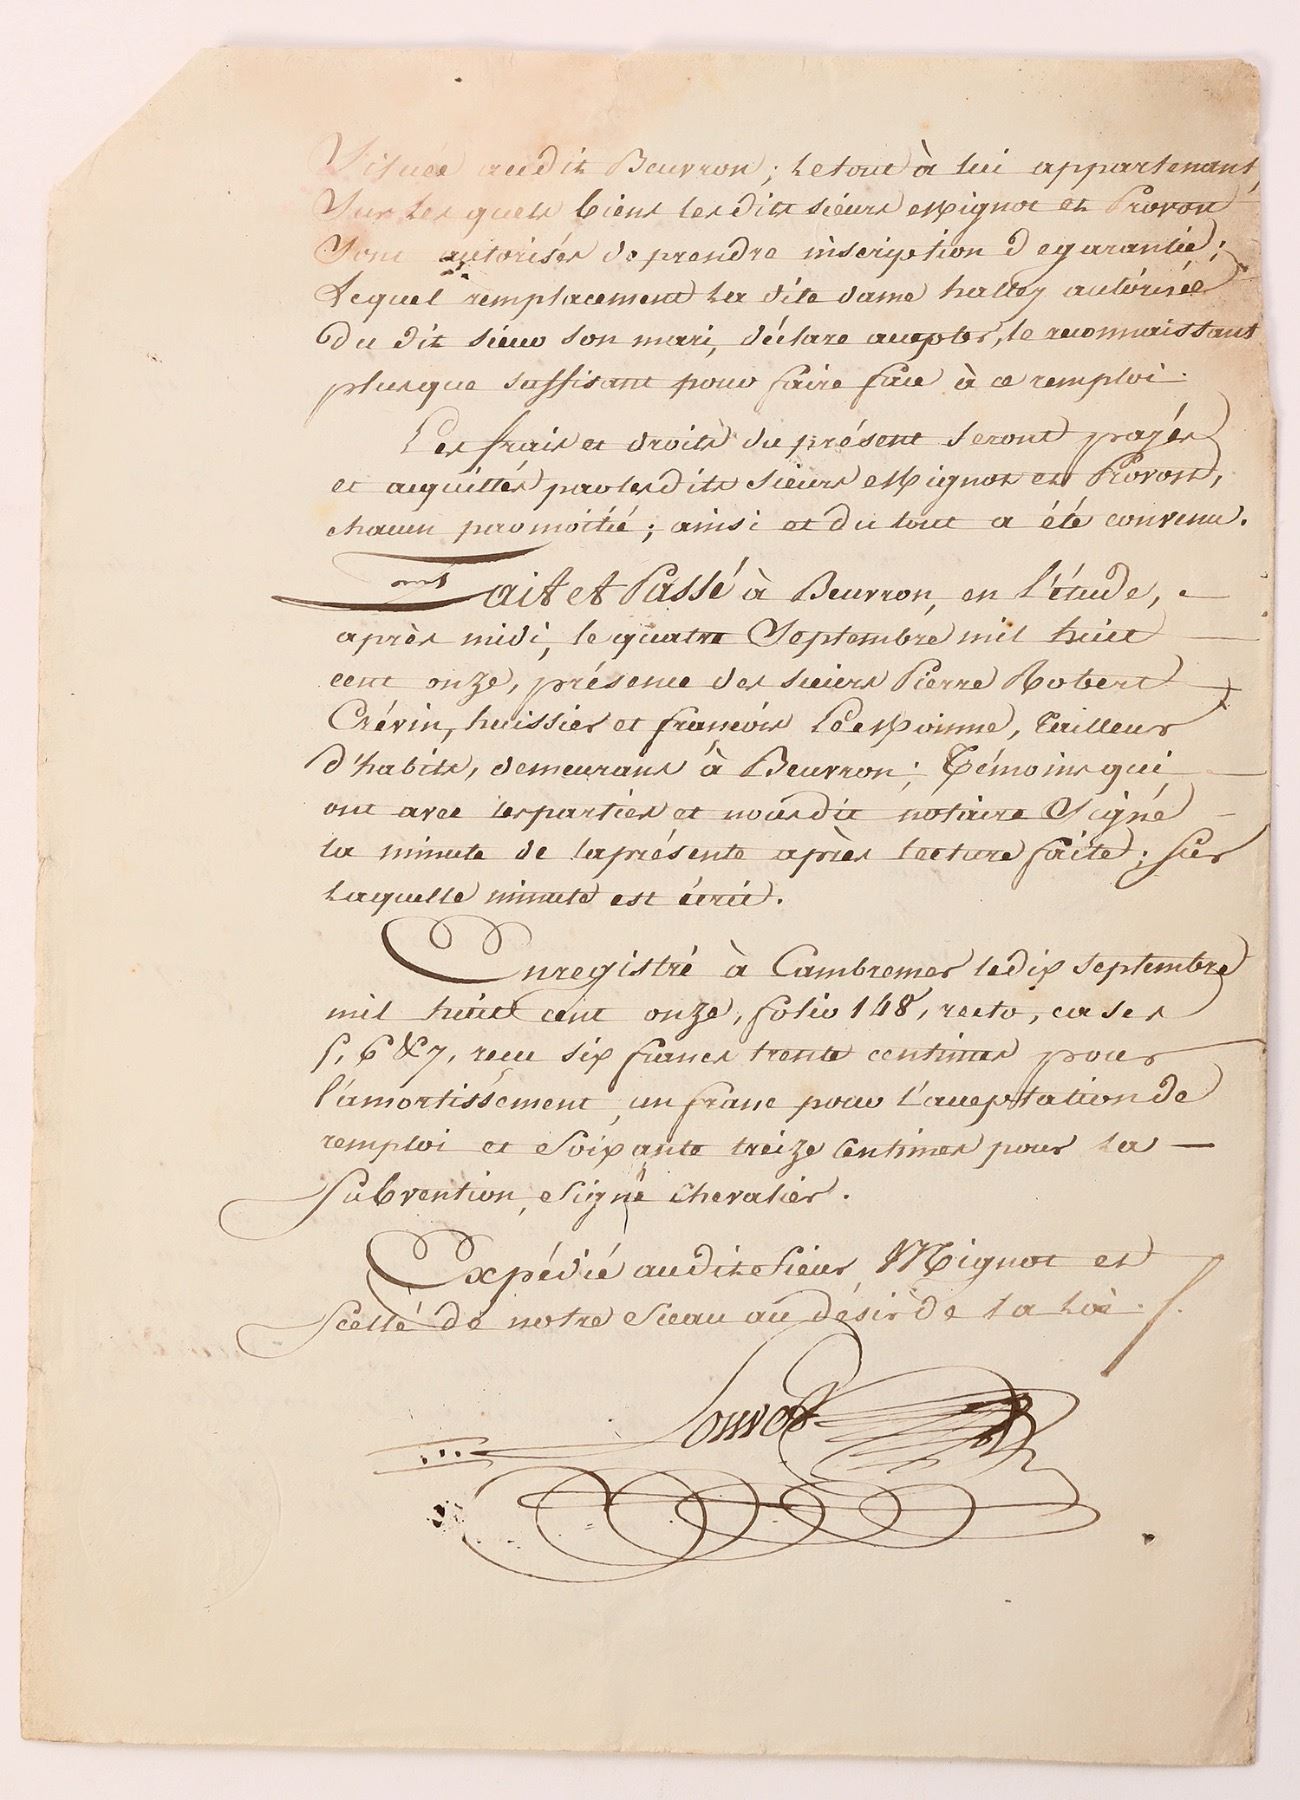 Située audit Beuvron; le tout à lui appartenant,
Sur lesquels biens lesdits sieurs Mignot et Provost
Sont autorisés de prendre inscription de garantie;
Lequel remplacement la dite dame halley autorisée
du dit sieur son mari, déclare accepter, le reconnaissant
plusque suffisant pour faire face à ce remploi.
Les frais et droits du présent seront payés
et acquittés par lesdits sieurs Mignot et Provost,
chacun par moitié; ainsi et du tout a été convenu.
Fait et Passé à Beuvron, en l'étude,
après midi, le quatre Septembre mil huit
cent onze, présence des sieurs Pierre Robert
Crévin, huissier et françois LeMoinne, Tailleur
d'habits, demeurans à Beuvron; Témoins qui
ont avec les parties et nous dit notaire Signé
la minute de la présente après lecture faite; sur
laquelle minute est écrit.
Enregistré à Cambremer le dix septembre
mil huit cent onze, folio 148, recto, cases
5, 6 & 7, reçu six francs trente centimes pour
l'amortissement, un franc pour l'acceptation de
remploi et soixante treize centimes pour la
subvention, Signé chevalier.
Expédié audit Sieur Mignot et
scellé de notre Sceau au désir de la loi.